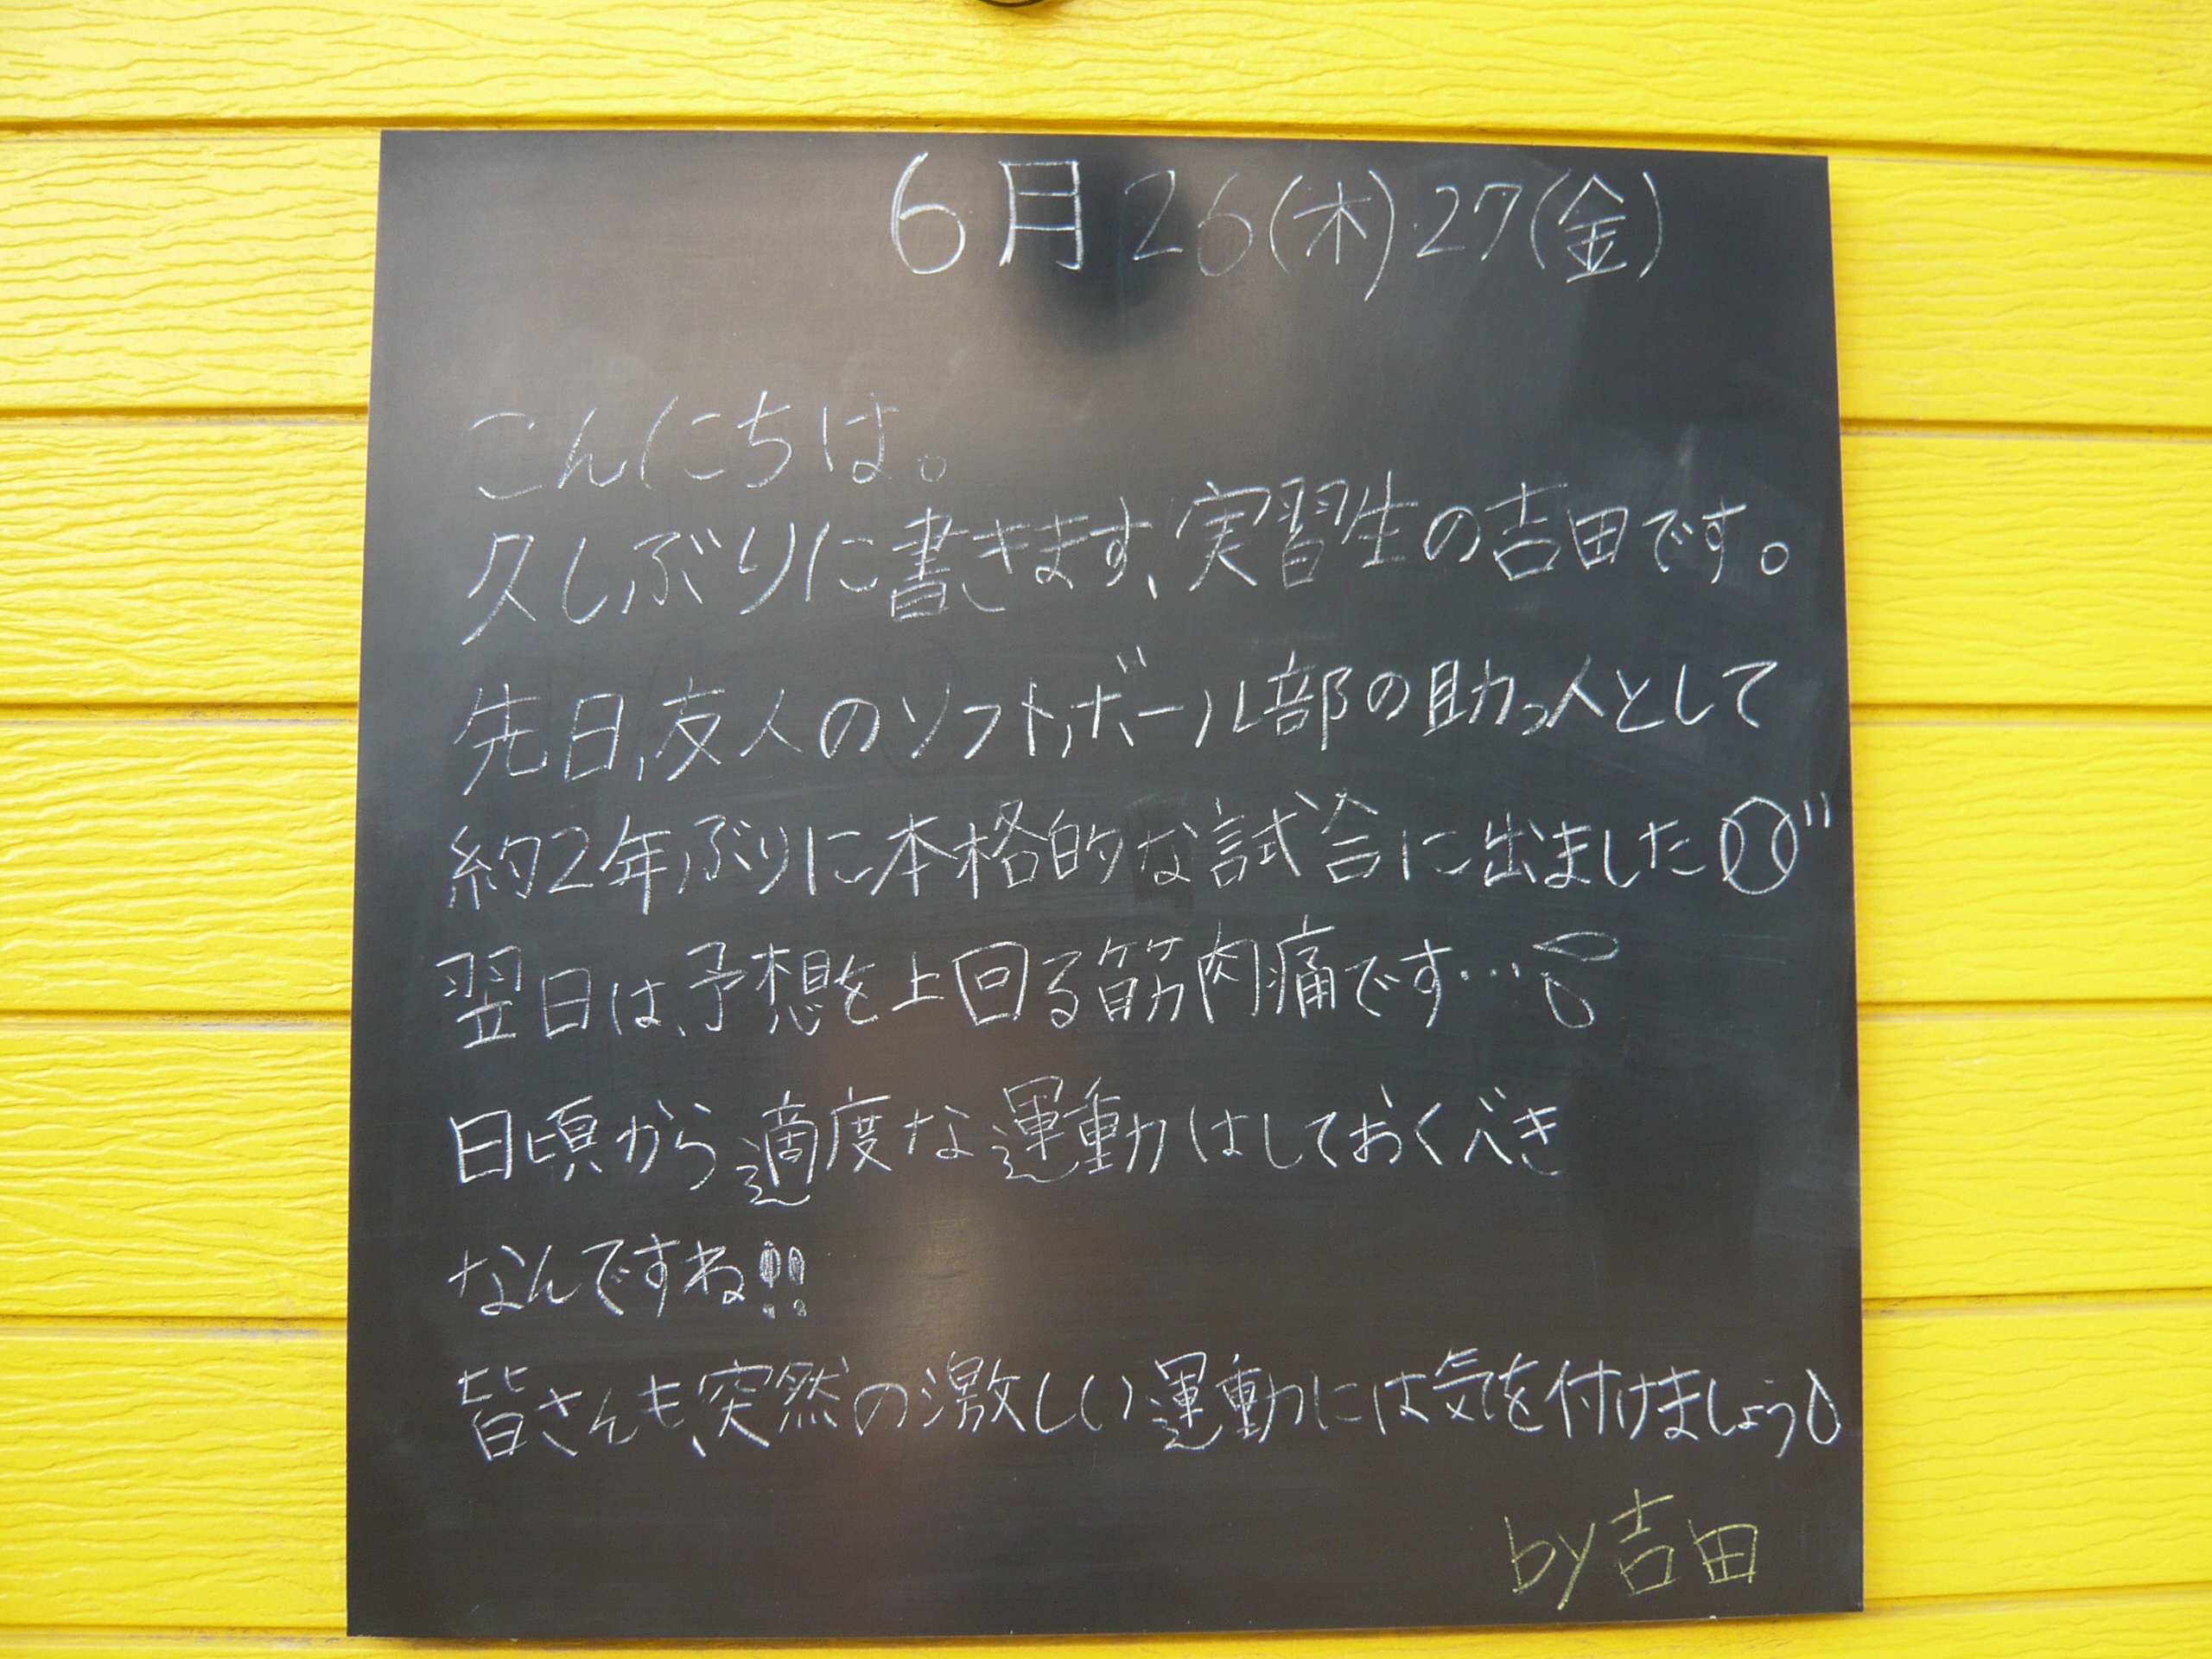 6月26(木)27(金)
こんにちは。
久しぶりに書きます、実習生の吉田です。
先日、友人のソフトボール部の助っ人として
約2年ぶりに本格的な試合に出ました
翌日は、予想を上回る筋肉痛です…
日頃から適度な運動はしておくべき
なんですね!!
皆さんも、突然の激しい運動には気を付けましょう
by吉田